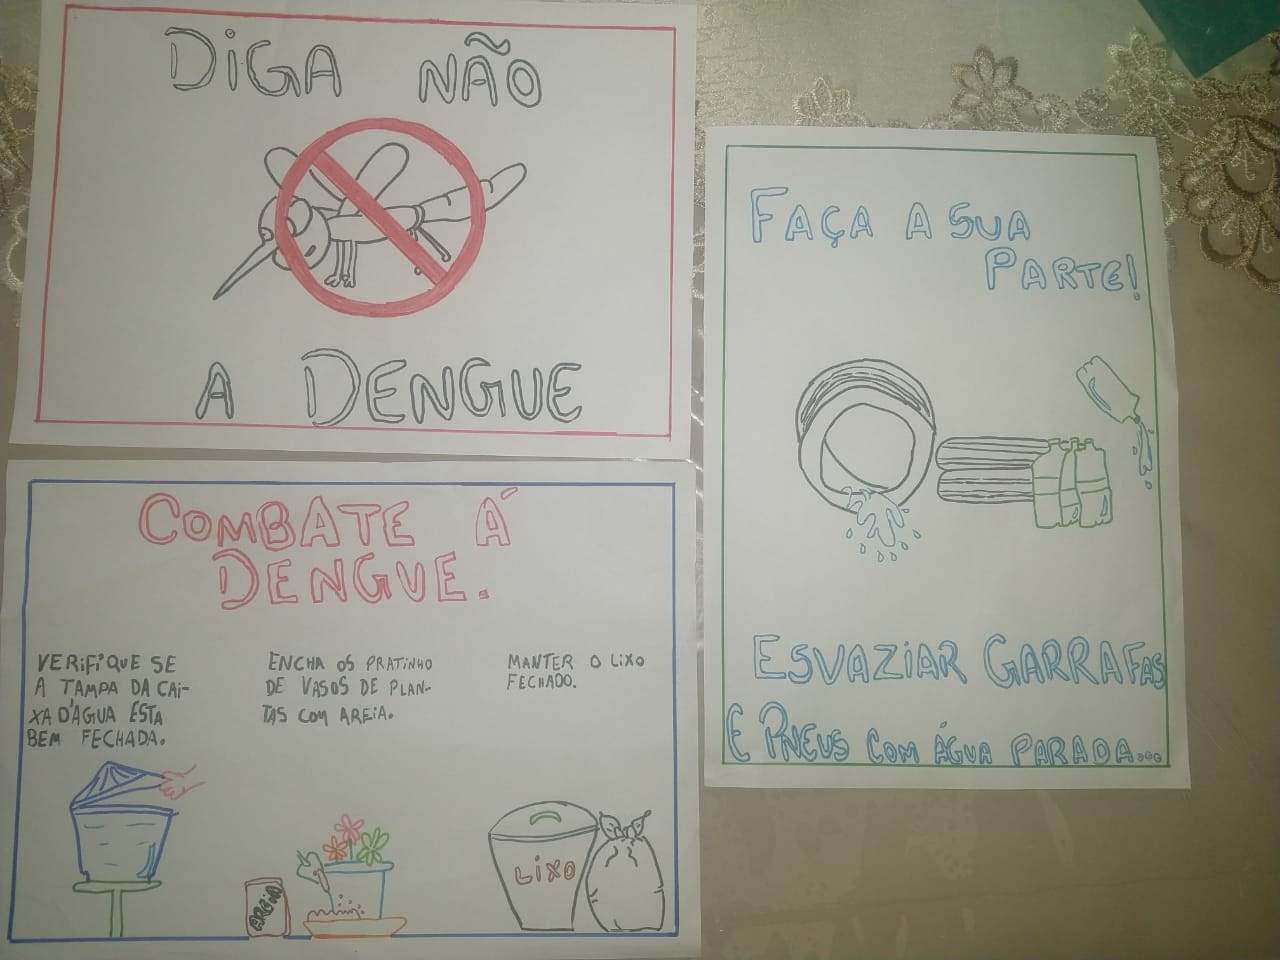 DiGA NÃO
A DENGUE
FAÇA A SUA
PARTE!
ESVAZIAR GARRAFAS
E PNEUS COM ÁGUA PARADA...
COMBATE Á
DENGUE.
VERIFIQUE SE
A TAMPA DA CAI-
XA D'ÁGUA ESTA
BEM FECHADA.
ENCHA OS PRATINHO
DE VASOS DE PLAN-
TAS COM AREIA.
MANTER O LIXO
FECHADO.
AREIA
LIXO